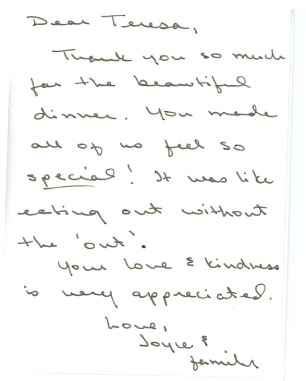 Dear Teresa,
Thank you so much
for the beautiful
dinner. You made
all of us feel so
special! It was like
eating out without
the 'out'.
Your love & kindness
is very appreciated.
Love,
Joyce &
family